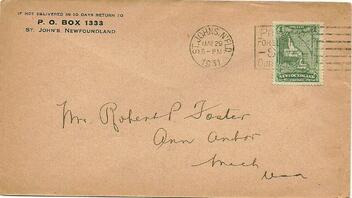 IF NOT DELIVERED IN 10 DAYS RETURN TO
P. O. BOX 1333
ST. JOHN'S, NEWFOUNDLAND
ST. JOHN'S, NFLD.
MAR 29
PM
1931
NEWFOUNDLAND
Mr. Robert P Foster
Ann Arbor
Mich
USA